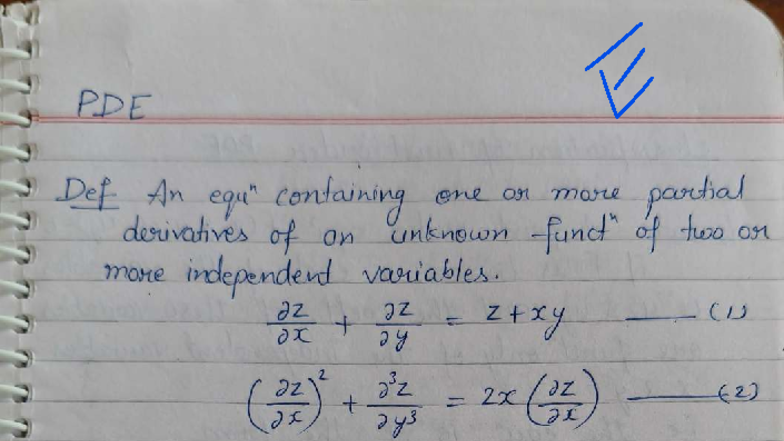 PDE
Def An equⁿ containing one or more partial
derivatives of an unknown functⁿ of two or
more independent variables.
∂z/∂x + ∂z/∂y = z + xy —— (1)
(∂z/∂x)² + ∂³z/∂y³ = 2x (∂z/∂x) —— (2)